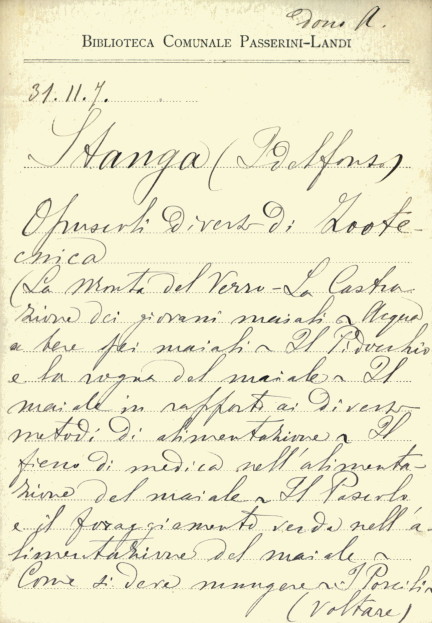 Dono A.
BIBLIOTECA COMUNALE PASSERINI-LANDI
31.11.7.
Stanga (Idelfonso)
Opuscoli diversi di Zoote-
cnica
(La monta del Verro - La Castra-
zione dei giovani maiali ~ Acqua
a bere pei maiali ~ Il Pidocchio
e la rogna del maiale ~ Il
maiale in rapporto ai diversi
metodi di alimentazione ~ Il
fieno di medica nell'alimenta-
zione del maiale ~ Il Pascolo
e il foraggiamento verde nell'a-
limentazione del maiale ~
Come si deve mungere ~ I Porcili ~
(voltare)